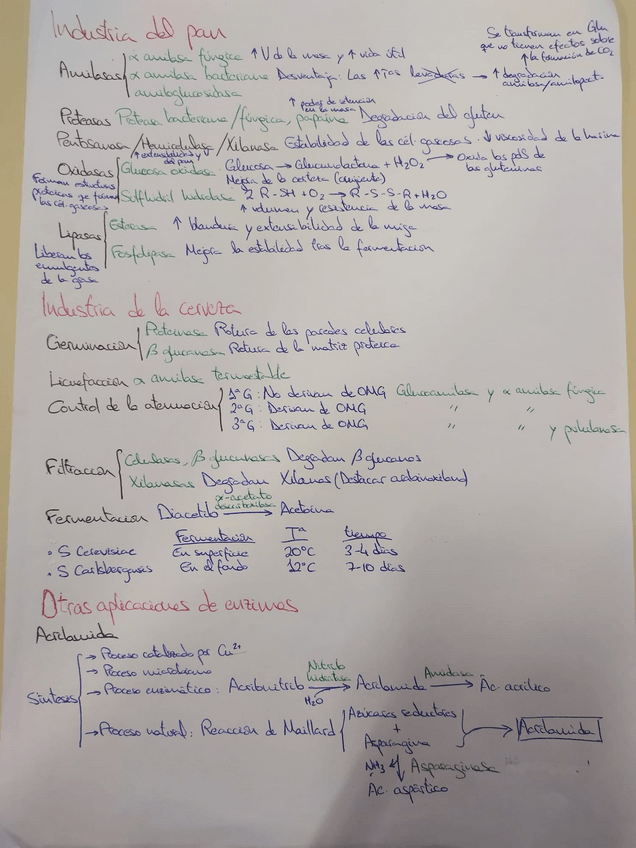 Industria del pan
Se transforman en Glu
que no tienen efectos sobre
↑ la formación de CO2
Amilasas
α amilasa fúngica ↑ V de la masa y ↑ vida útil
α amilasa bacteriana Desventaja: Las ↑Tas levaduras → ↑ degradación
amilosa/amilopect
amiloglucosidasa
↑ poder de retención
en la masa
Proteasas Proteasa bacteriana/fúngica, papaína Degradación del gluten
Pentosanasa/Hemicelulasa/Xilanasa Estabilidad de las cél. gaseosas ↓ viscosidad de la harina
↑ extensibilidad y
del pan
Oxidasas
Forman estructuras
proteicas que forman
las cél. gaseosas
Glucosa oxidasa: Glucosa → Gluconolactona + H2O2 → Oxida los pdS de
las gluteninas
Mejora de la corteza (crujiente)
Sulfhidril oxidasa 2 R-SH + O2 → R-S-S-R + H2O
↑ volumen y resistencia de la masa
Lipasas
Liberan los
emulgentes
de la grasa
Esterasa ↑ blandura y extensibilidad de la miga
Fosfolipasa Mejora la estabilidad tras la fermentación
Industria de la cerveza
Germinación
Proteinasa Rotura de las paredes celulares
β glucanasa Rotura de la matriz proteica
Licuefacción α amilasa termoestable
Control de la atenuación
1ª G: No derivan de OMG Glucoamilasa y α amilasa fúngica
2ª G: Derivan de OMG " "
3ª G: Derivan de OMG " " y pululanasa
Filtración
Celulasas, β glucanasas Degradan β glucanos
Xilanasas Degradan Xilanos (Destacar arabinoxilano)
α-acetato
descarboxilasa
Fermentación Diacetilo → Acetoína
Fermentación Tª tiempo
• S Cerevisiae En superficie 20°C 3-4 días
• S Carlsbergensis En el fondo 12°C 7-10 días
Otras aplicaciones de enzimas
Acrilamida
Síntesis
→ Proceso catalizado por Cu2+
→ Proceso microbiano
→ Proceso enzimático: Acrilonitrilo → Acrilamida → Ác. acrílico
Nitrilo
hidratasa
H2O
Amidasa
→ Proceso natural: Reacción de Maillard
Azúcares reductores
+
Asparagina
Acrilamida
NH3 Asparaginasa
Ac. aspártico